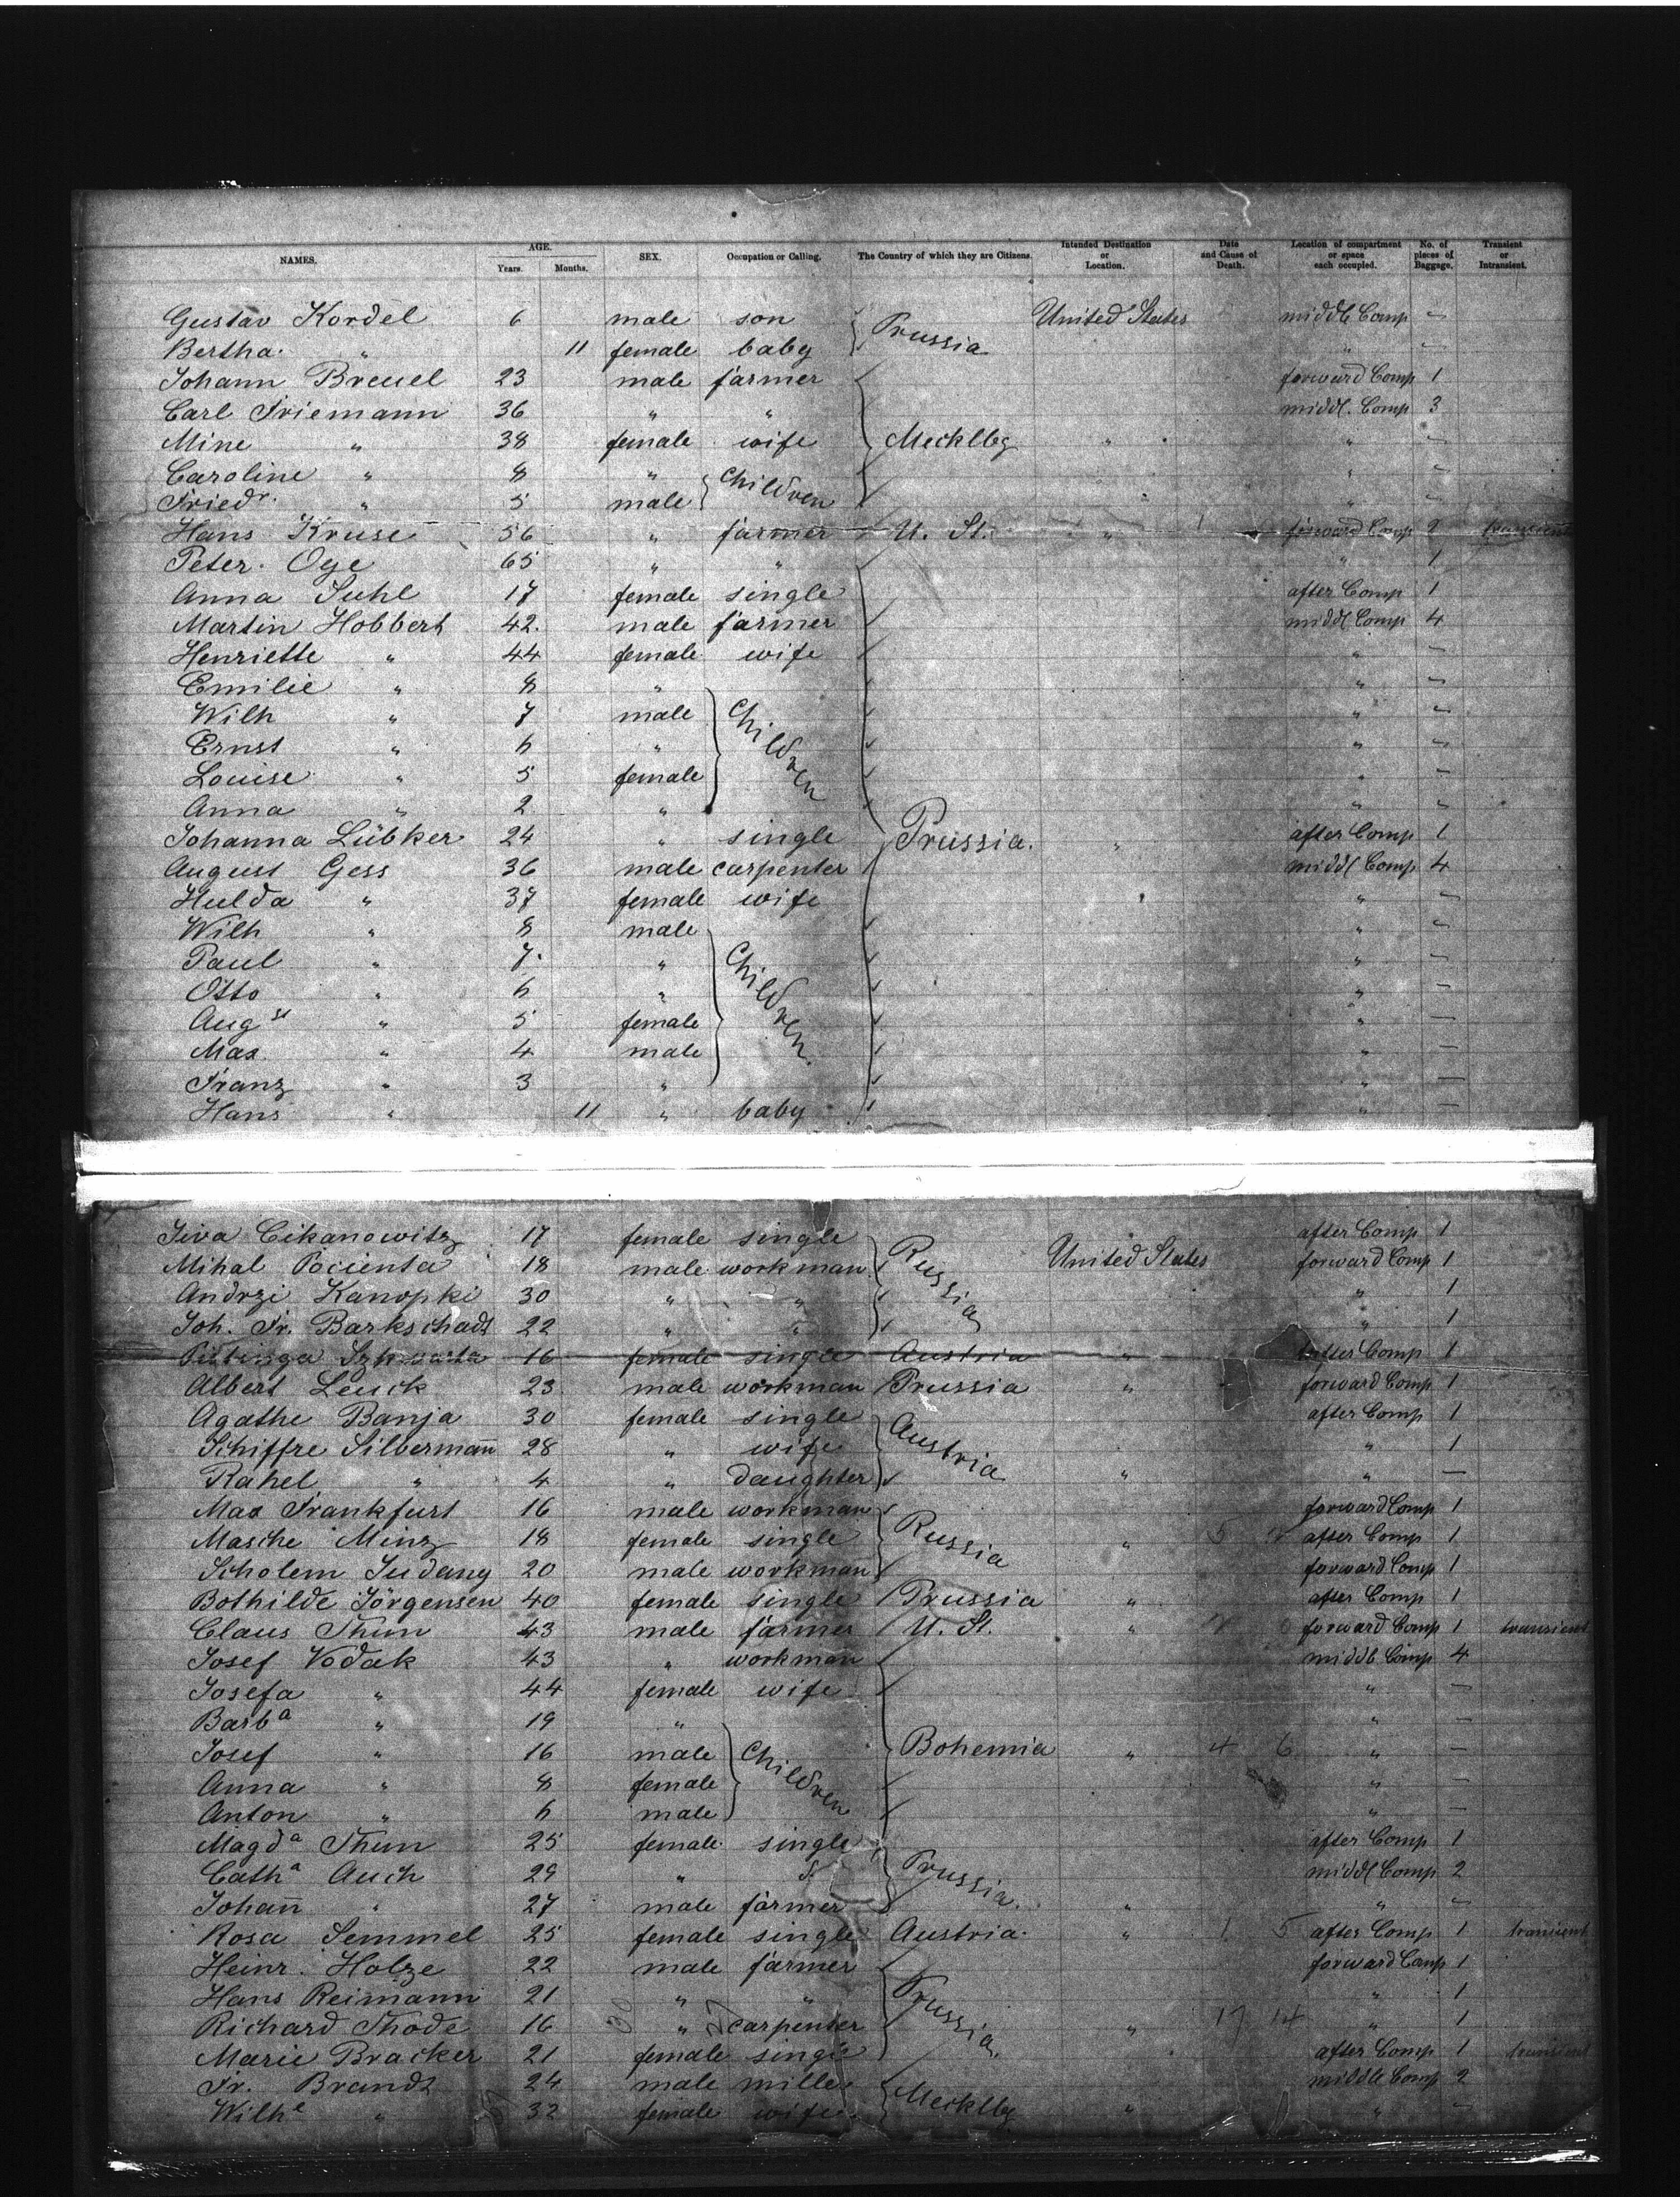 NAMES. AGE. Years. Months. SEX. Occupation or Calling. The Country of which they are Citizens. Intended Destination or Location. Date and Cause of Death. Location of compartment or space each occupied. No. of pieces of Baggage. Transient or Intransient.
Gustav Kordel 6 male son Prussia United States middle Comp —
Bertha " 11 female baby " —
Johann Breuel 23 male farmer forward Comp 1
Carl Friemann 36 " " middl. Comp 3
Mine " 38 female wife Mecklbg " " —
Caroline " 8 " Children " —
Friedr. " 5 male " —
Hans Kruse 56 " farmer U. St. " forward Comp 2 transient
Peter Oge 65 " " " 1
Anna Suhl 17 female single after Comp 1
Martin Hobbert 42 male farmer middl Comp 4
Henriette " 44 female wife " —
Emilie " 8 " Children " —
Wilh " 7 male " —
Ernst " 6 " " —
Louise " 5 female " —
Anna " 2 " " —
Johanna Lübker 24 " single Prussia. " after Comp 1
August Gess 36 male carpenter middl Comp 4
Hulda " 37 female wife " —
Wilh " 8 male Children " —
Paul " 7 " " —
Otto " 6 " " —
Augst " 5 female " —
Max " 4 male " —
Franz " 3 " " —
Hans " 11 " baby " —
Cikanowitz 17 female single Russia after Comp 1
Mihal Pocienta 18 male workman United States forward Comp 1
Andrzi Kanopki 30 " " " 1
Joh. Fr. Barkschadt 22 " " " 1
16 female single Austria " after Comp 1
Albert Leuck 23 male workman Prussia " forward Comp 1
Agathe Banja 30 female single Austria after Comp 1
Schiffre Silbermann 28 " wife " 1
Rahel " 4 " daughter " " —
Max Frankfurt 16 male workman Russia forward Comp 1
Masche Minz 18 female single " 5 after Comp 1
Scholem Sudany 20 male workman forward Comp 1
Bothilde Jörgensen 40 female single Prussia " after Comp 1
Claus Thun 43 male farmer U. St. " forward Comp 1 transient
Josef Vodak 43 " workman middle Comp 4
Josefa " 44 female wife " —
Barba " 19 " Children " —
Josef " 16 male Bohemia " 4 6 " —
Anna " 8 female " —
Anton " 6 male " —
Magda Thun 25 female single Prussia. after Comp 1
Catha Auch 29 " middl Comp 2
Johann " 27 male farmer " " —
Rosa Semmel 25 female single Austria. " 1 5 after Comp 1 transient
Heinr. Holze 22 male farmer Prussia. forward Comp 1
Hans Reimann 21 " " " 1
Richard Thode 16 " carpenter " 17 14 " 1
Marie Bracker 21 female single after Comp 1 transient
Fr. Brandt 24 male miller Mecklbg middle Comp 2
Wilhe " 32 female wife " " —